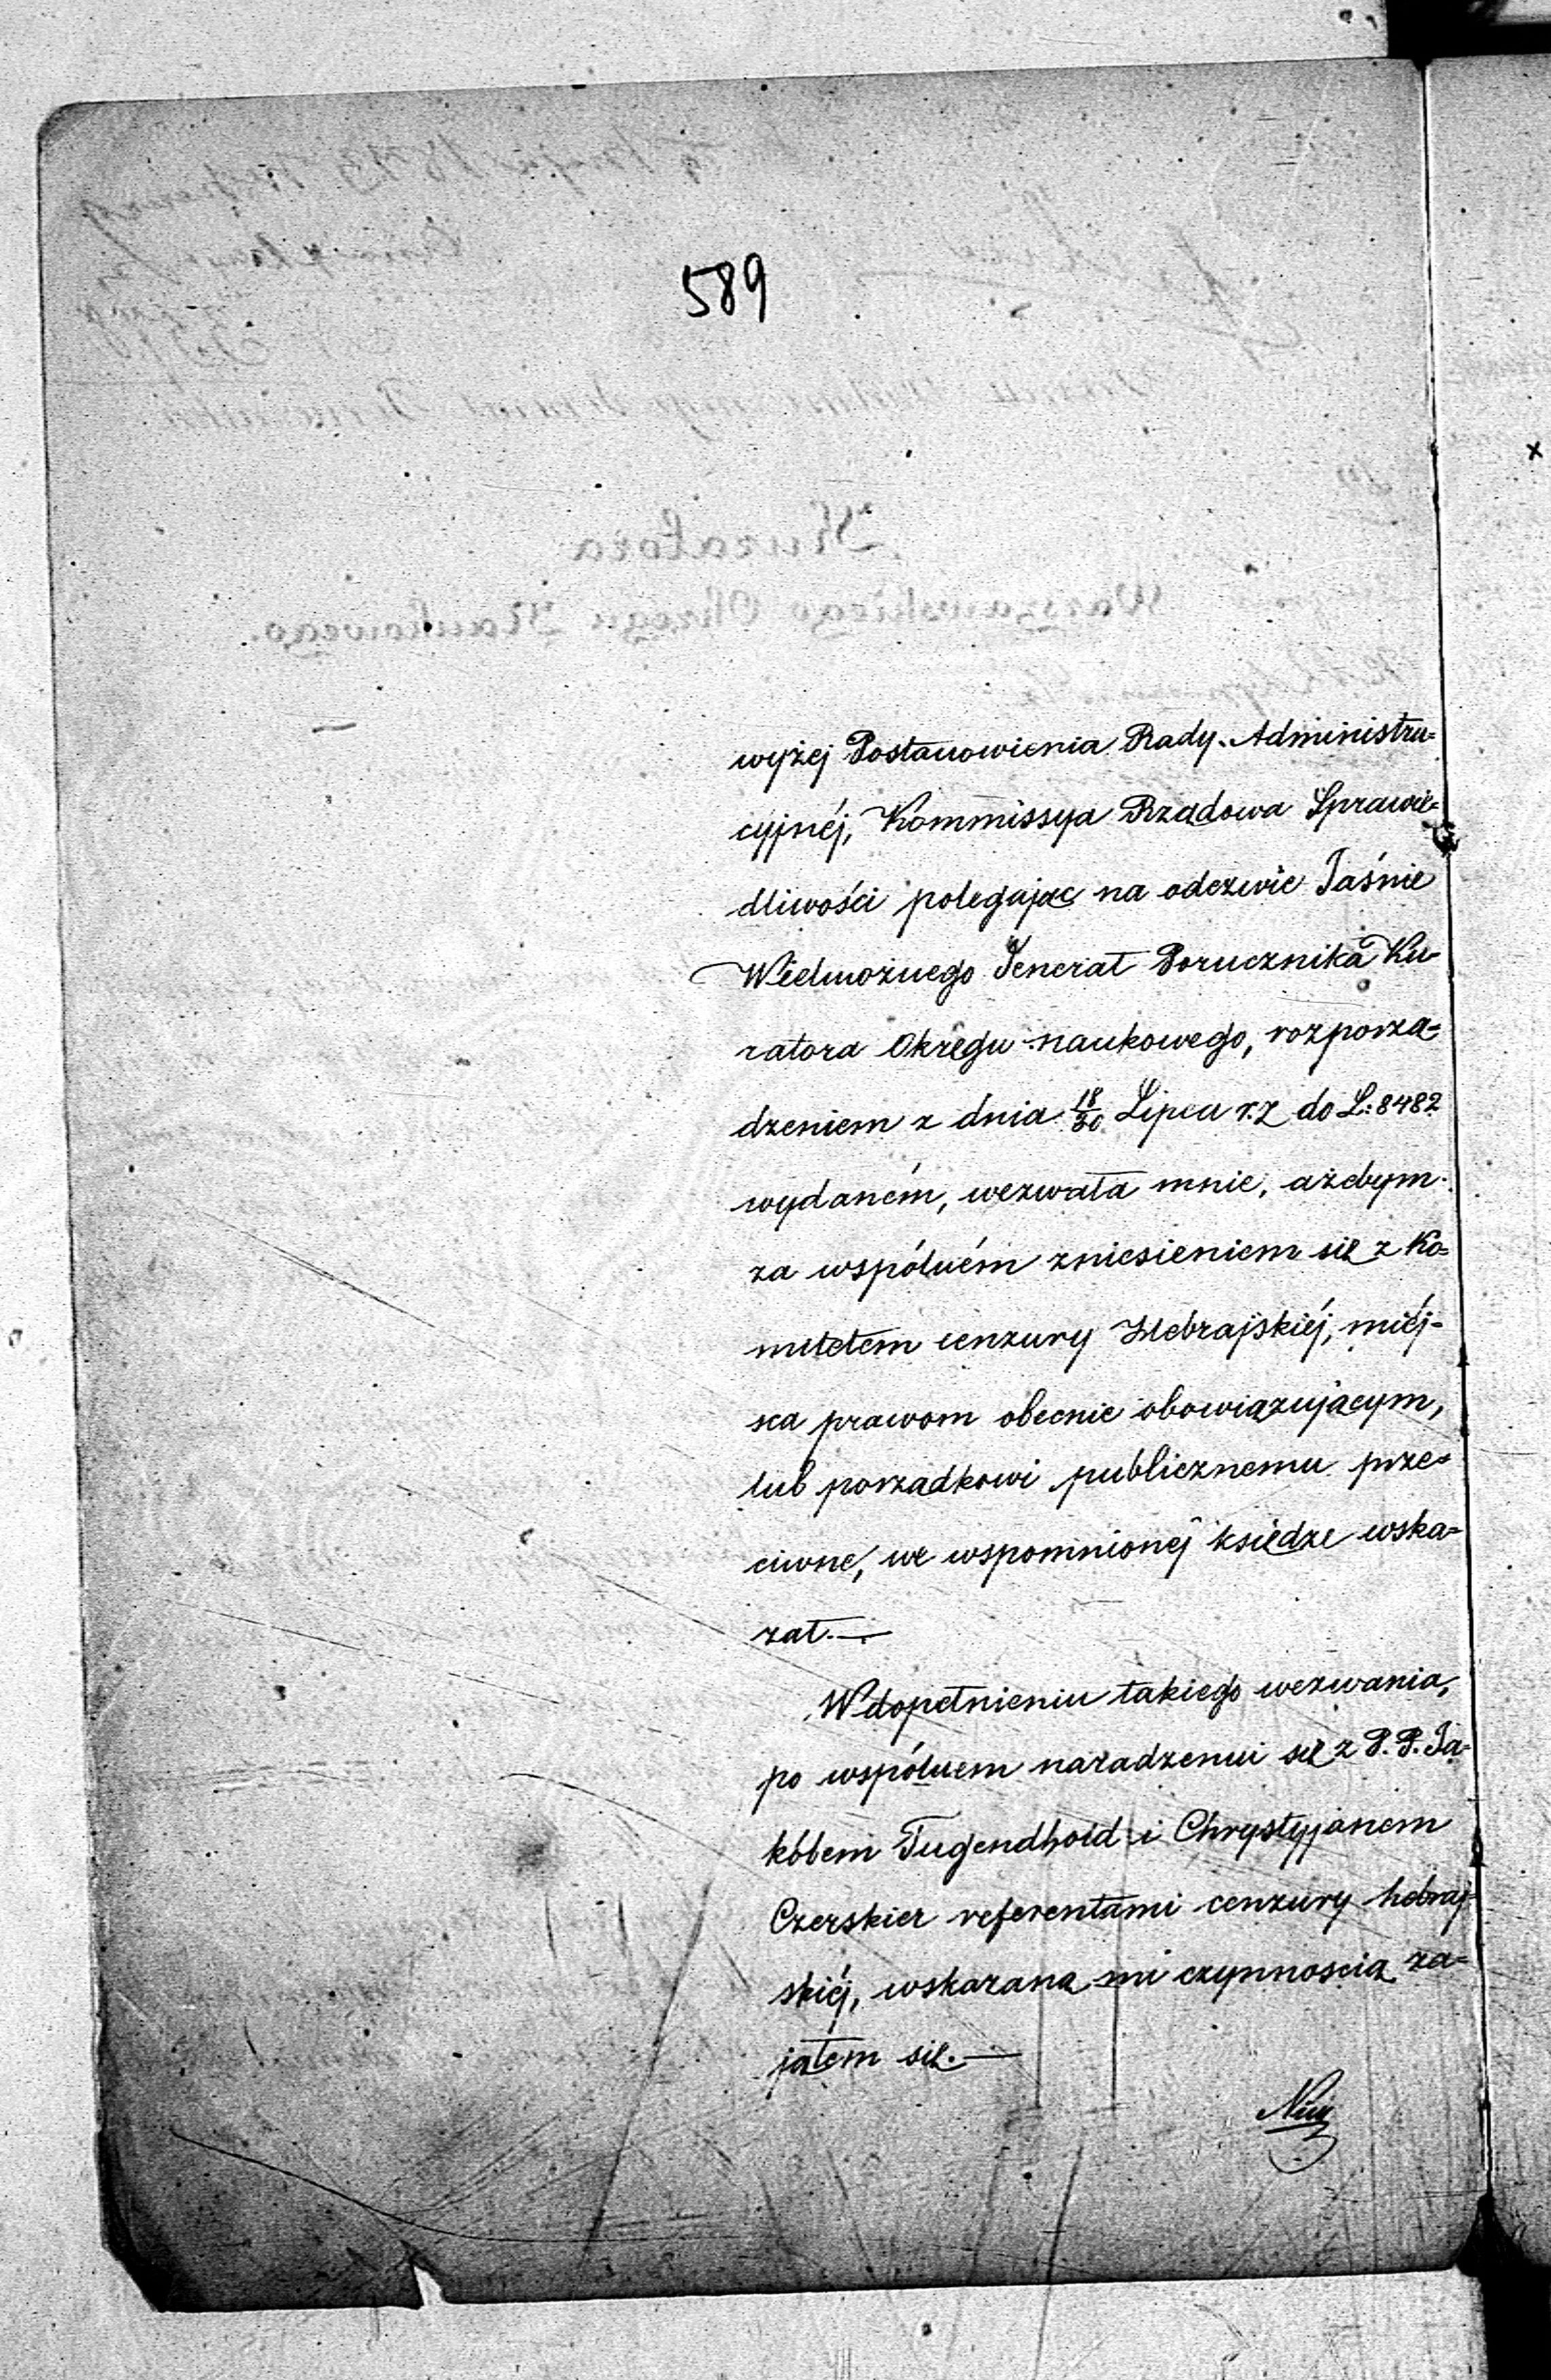 589
wyżej Postanowienia Rady Administra=
cyjnéj, Kommissya Rządowa Sprawie=
dliwości polegając na odezwie Jaśnie
Wielmożnego Jenerał Porucznika Ku-
ratora Okręgu naukowego, rozporzą=
dzeniem z dnia 18/30 Lipca r. z do L: 8482
wydaném, wezwała mnie, ażebym
za wspólném zniesieniem się z Ko=
mitetem cenzury Hebrajskiéj, miéj=
sca prawom obecnie obowiązującym,
lub porządkowi publicznemu prze=
ciwne, we wspomnionéj księdze wska=
zał.—
W dopełnieniu takiego wezwania,
po wspólnem naradzeniu się z P. P. Ja-
kóbem Tugendhold i Chrystyjanem
Czerskier referentami cenzury hebraj=
skiéj, wskazaną mi czynnością za=
jąłem się.—